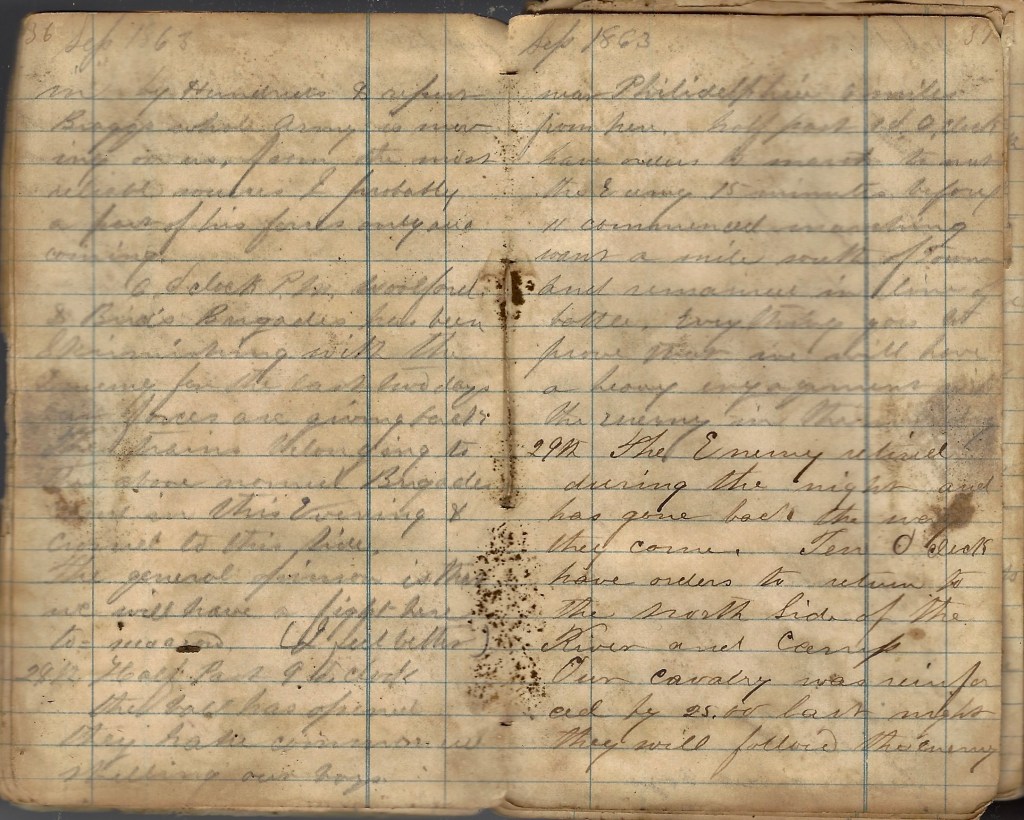 36 Sep 1863
in by Hundreds & report
Braggs whole army is mov
ing on us, from the most
reliable sources I probably
a part of his forces only are
coming.
6 O clock P.M. Woolford
& Birds Brigades has been
Skirmishing with the
Enemy for the last two days
our forces are giving back
the trains belonging to
the above named Brigades
in this Evening &
to this side.
the general opinion is that
we will have a fight here
to- (I feel better)
Half Past 9 O clock
the ball has opened
they have commenced
shelling our boys.
Sep 1863 37
near Philidelphia 6 miles
from here. half past 10 O,clock
have orders to march to meet
the Enemy 15 minutes before
11 commenced marching
went a mile south of town
and remained in line of
battle. Every thing goes to
prove that we will have
a heavy engagement with
the enemy in the
29th The Enemy retired
during the night and
has gone back the way
they come. Ten O clock
have orders to return to
the North Side of the
River and Camp
Our cavalry was reinfor
ced by 25.00 last night
they will follow the enemy